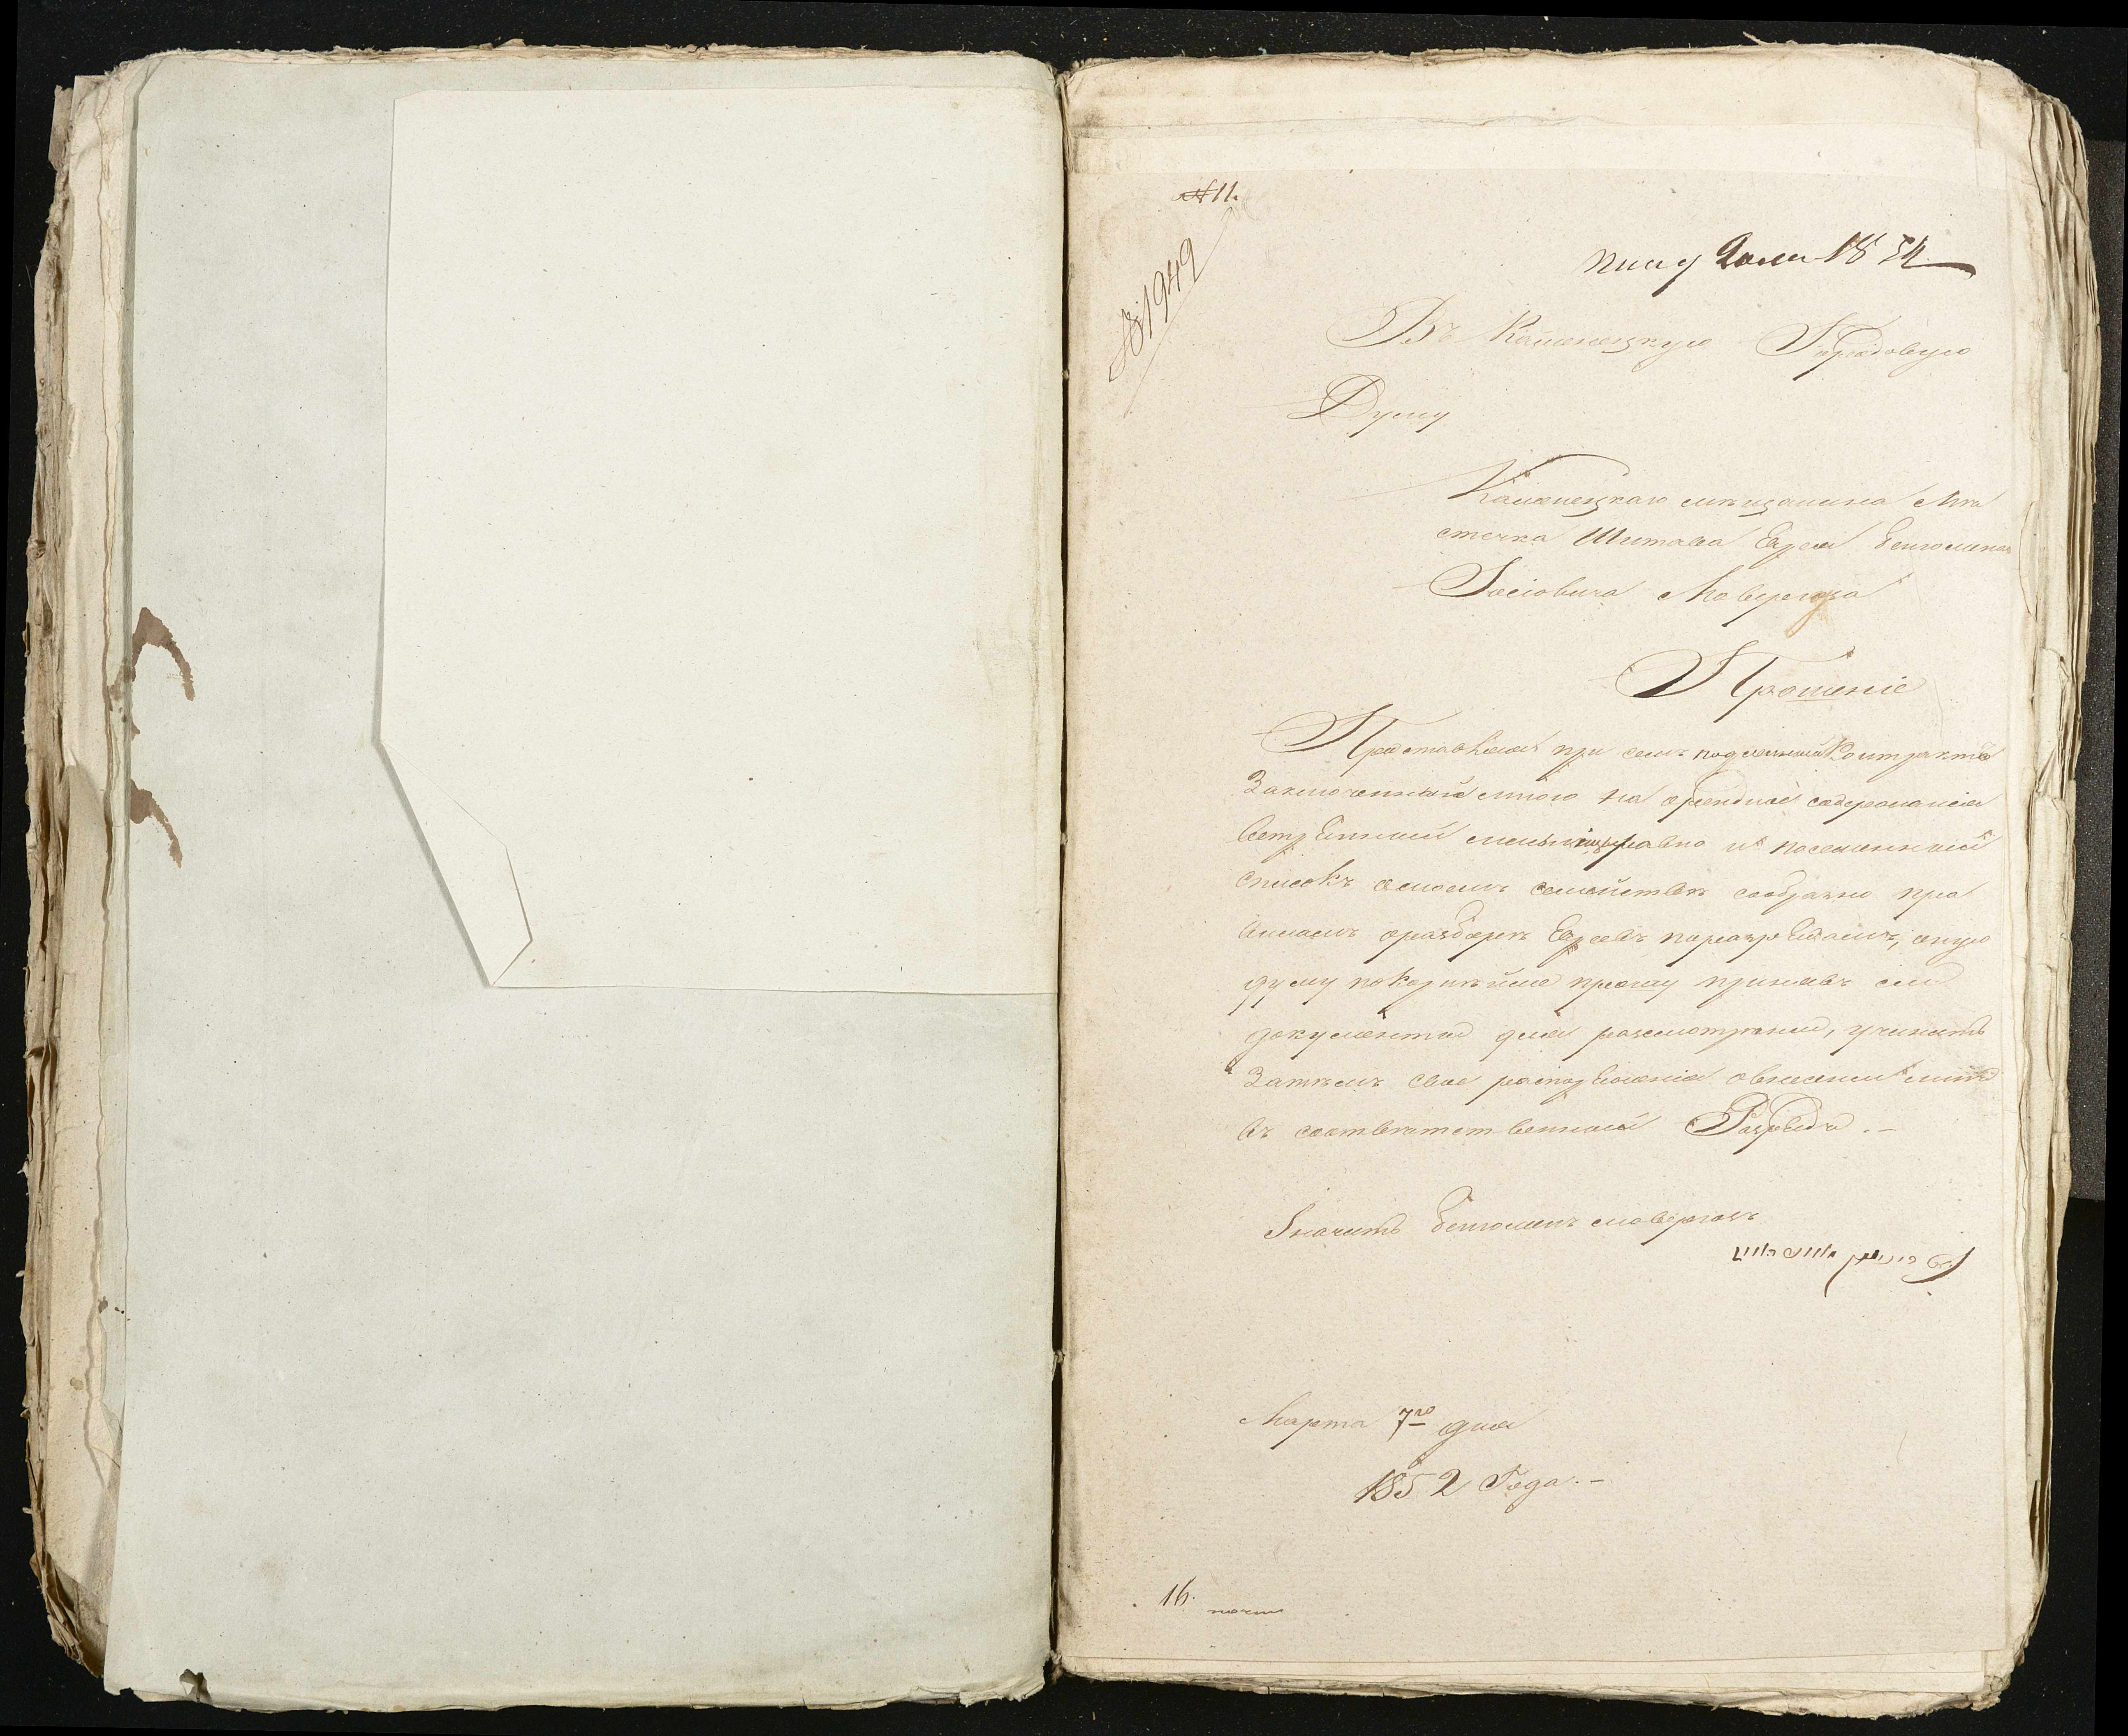 № 11.
№ 1949
1852
Въ Каменецкую Градовую
Думу
Каменецкаго мѣщанина Мѣ
стечка Шатава Еврея Беніомина
Іосіовича Мавергоза
Прошеніе
Представляя при семъ подлинный Контрактъ
Заключенный мною на арендное содержаніе
ветрянной мельницы равно и посемейный
списокъ о моемъ семействѣ сообразно пра
виламъ о разборѣ Евреевъ по разрядамъ, оную
думу покорнѣйше прошу принявъ сіи
документы для разсмотренія, учинить
Затѣмъ свое распоряженіе о внесеніи меня
въ соотвѣтственный Разрядъ. -
Значитъ Беніоминъ Мавергозъ
Марта 7го дня
1852 Года. -
16.